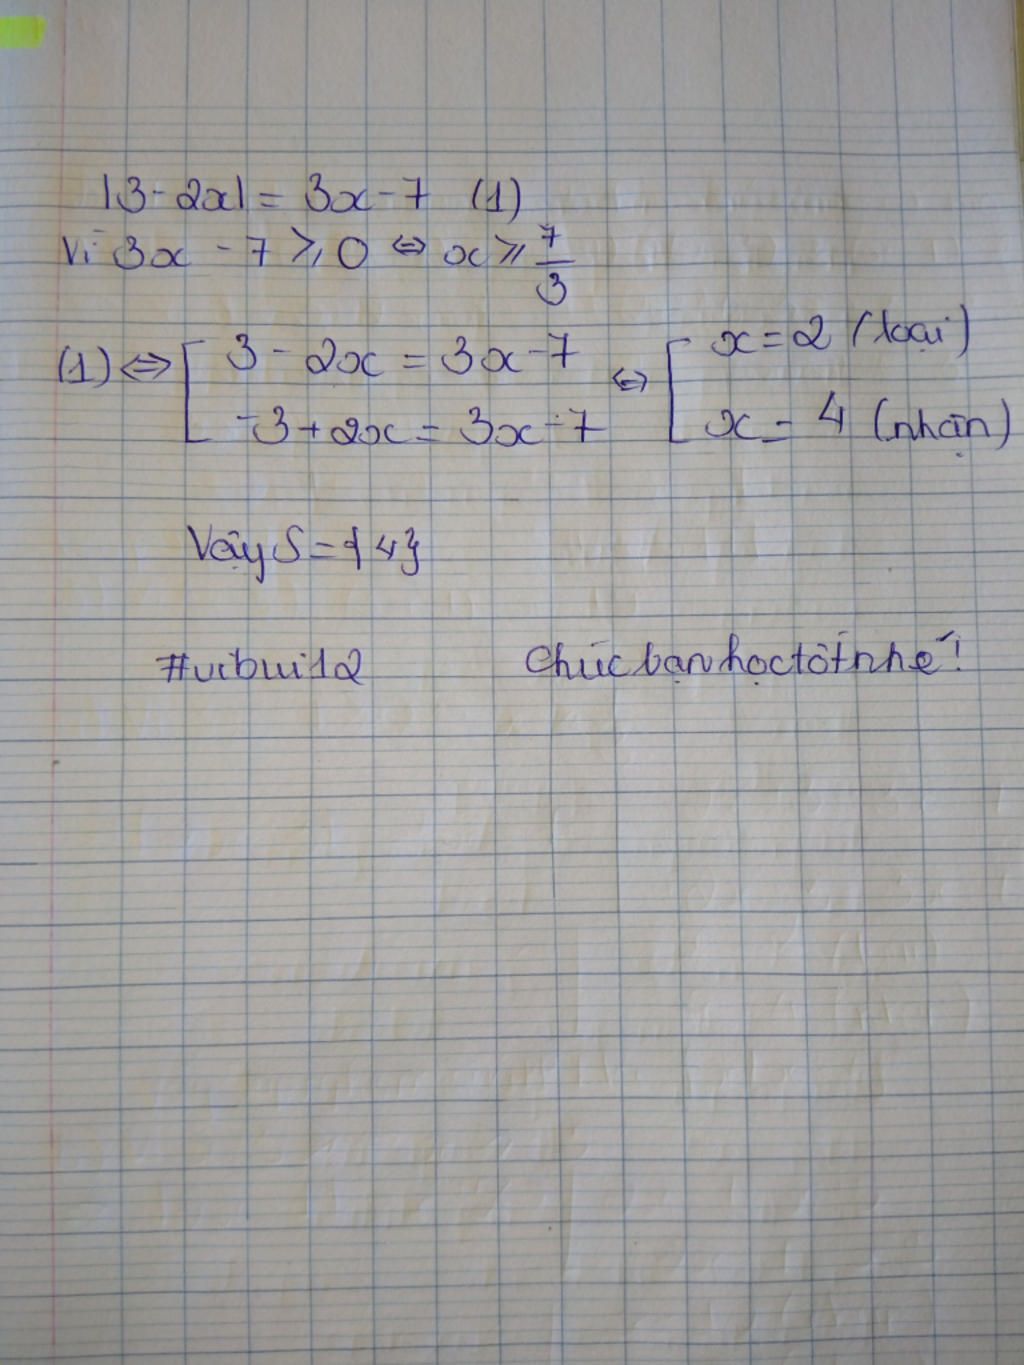 |3-2x| = 3x-7 (1)
Vì 3x - 7 ⩾ 0 ⇔ x ⩾ 7/3
(1) ⇔ [ 3 - 2x = 3x-7 ⇔ [ x = 2 (loại)
-3 + 2x = 3x-7 x = 4 (nhận)
Vậy S = {4}
#vibui12 Chúc bạn học tốt nhé!